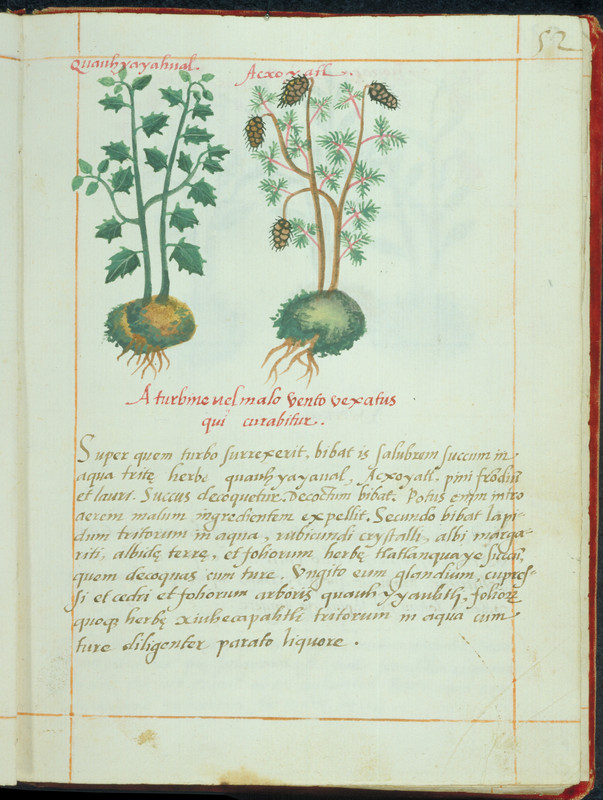 52
Quauhyayahual.
Acxoyatl.
A turbine uel malo vento vexatus
qui curabitur.
Super quem turbo surrexerit, bibat is salubrem succum in
aqua tritę herbę quauhyayaual, Acxoyatl, pini frōdiū
et lauri. Succus decoquetur. Decoctum bibat. Potus enim intro
aerem malum ingredientem expellit. Secundo bibat lapi-
dum tritorum in aqua, rubicundi crystalli, albi marga-
riti, albidę terrę, et foliorum herbę tlatlanquaye succū,
quem decoquas cum ture. Vngito eum glandium, cupres-
si et cedri et foliorum arboris quauhyyauhtli, folior
quoqꝫ herbę xiuhecapahtli tritorum in aqua cum
ture diligenter parato liquore.